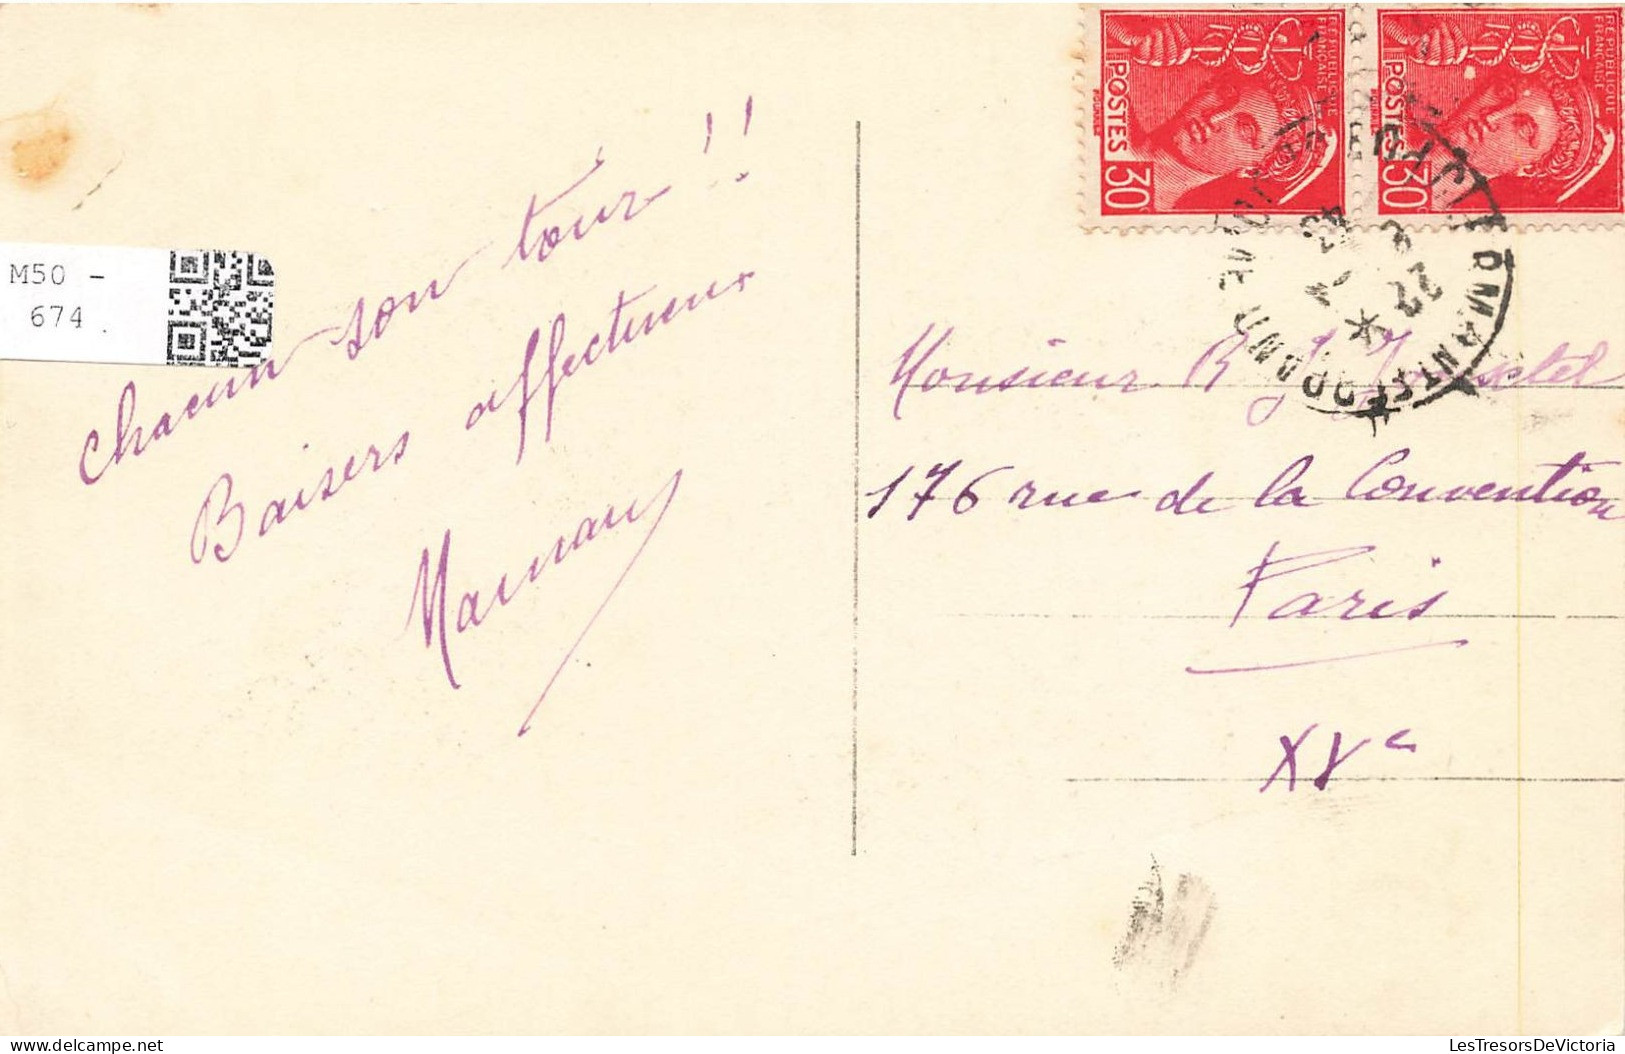 M50 -
674
chacun son tour !!
Baisers affectueux
Maman
REPUBLIQUE
FRANÇAISE
POSTES
30c
REPUBLIQUE
FRANÇAISE
POSTES
30c
Monsieur R
176 rue de la Convention
Paris
XVe
LesTresorsDeVictoria